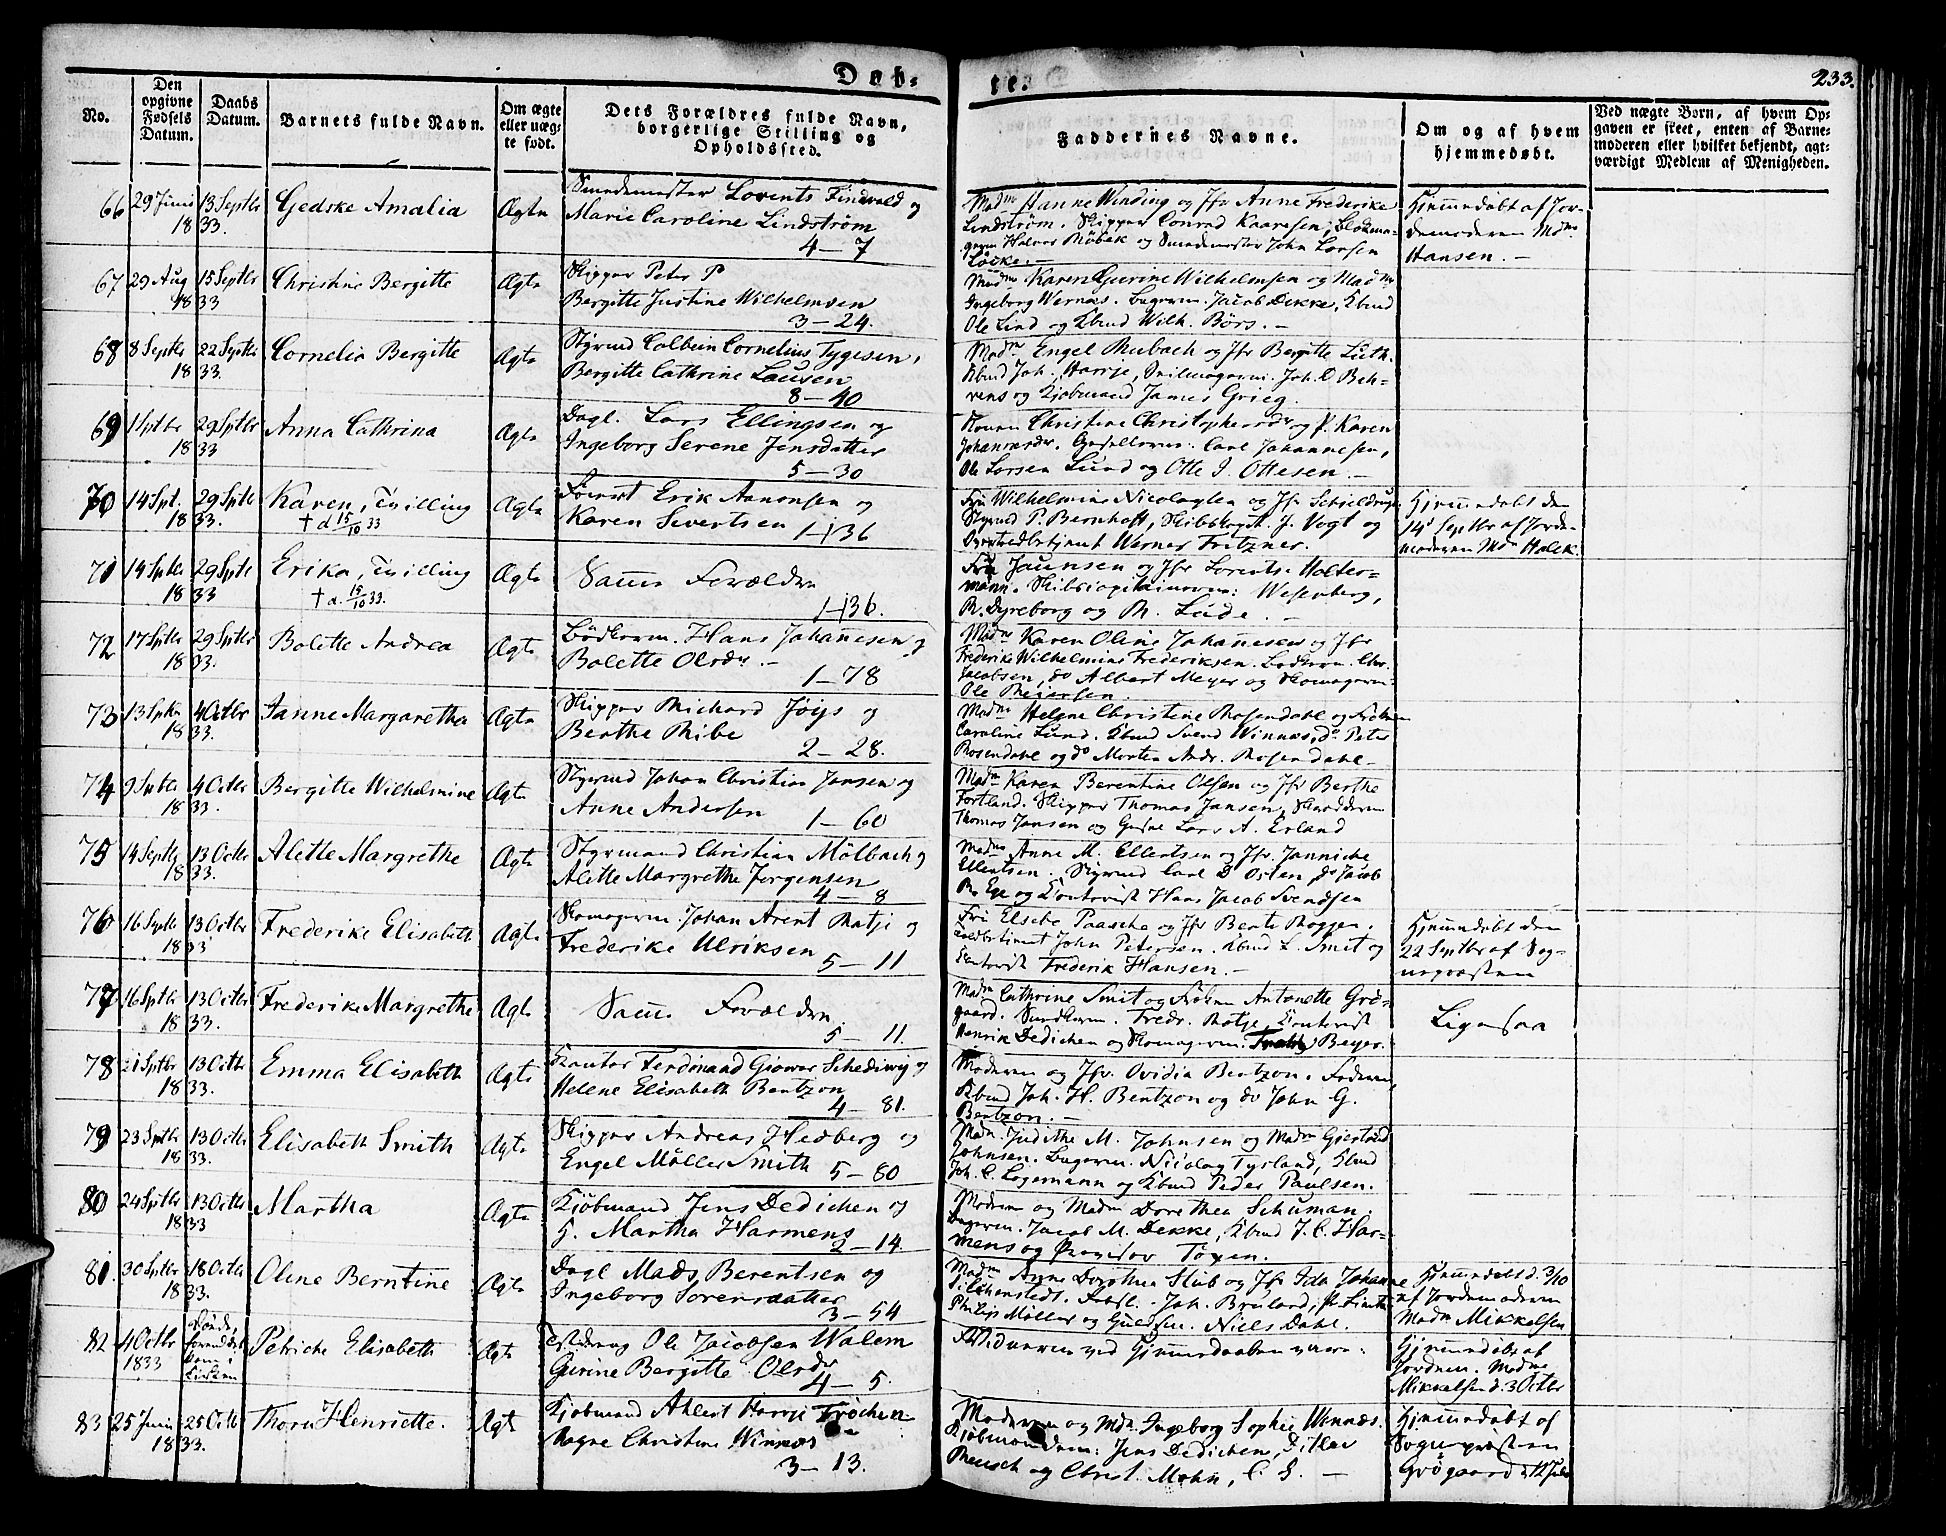 Døb-
te.
233.
No.
Den opgivne Fødsels Datum.
Daabs Datum.
Barnets fulde Navn.
Om ægte eller uægte født.
Dets Forældres fulde Navn, borgerlige Stilling og Opholdssted.
Faddernes Navne.
Om og af hvem hjemmedøbt.
Ved uægte Børn, af hvem Opgaven er skeet, enten af Barnemoderen eller hvilket bekjendt, agtværdigt Medlem af Menigheden.
66 29 Juni 13 Septbr Gedske Amalia Ægte Smedemester Lorents Findvald og
18 33. Marie Caroline Lindstrøm
4 — 7
Madme Hanne Winding og Jfr Anne Frederike
Lindstrøm. Skipper Conrad Kaaresen, Blokma-
ger Halvor Røbek og Smedemester John Larsen
Løcke. —
Hjemmedøbt af Jor-
demoderen Mdme
Hansen. —
67 29 Aug 15 Septbr Christine Bergitte Ægte Skipper Peter P
18 33 Bergitte Justine Wilhelmsen
3 — 24.
Madme Karen Gurine Wilhelmsen og Madme
Ingeborg Wernas. Bagerm. Jacob Dekke, Kbmd
Ole Lind og Kbmd Wilh. Börs. —
68 8 Septbr 22 Septbr Cornelia Bergitte Ægte Styrmd Colbein Cornelius Tygesen,
18 33. Bergitte Cathrine Lausen
8 — 40
Madm Engel Rubach og Jfr Bergitte Lüth.
Kbmd Joh. Harrje, Seilmagerm. Joh. D Beh-
rens og Kjøbmand James Grieg.
69 1 Sptbr 29 Sptbr Anna Cathrina Ægte Dagl. Lars Ellingsen og
18 33 Ingeborg Serene Jensdatter
5 — 30
Konen Christine Christophersdr og P. Karen
Johannesdr. Carl Johannesen,
Ole Larsen Lund og Otte J. Ottesen. —
70 14 Spt. 29 Sptb Karen, Tvilling Ægte Erik Aanonsen og
18 33. † d 15/10 33 Karen Sivertsen 1 — 136
Fru Wilhelmine Nicolaysen og Jfr Schieldrup
Styrmd P. Bernhoft, J. Vogt og
Werner Fritzner.
Hjemmedøbt den
14d Septbr af Jorde-
moderen Mdm Halck.
71 14 Sptbr 29 Sptb Erika, Tvilling Ægte Samme Forældre
18 33 † d. 15/10 33. 1 — 136.
Fru Jaunsen og Jfr Lorentse Holter-
mann. Skibscapitainerne: Wesenberg,
R. Dyreborg og M. Lude. —
72 17 Sptbr 29 Sptbr Bolette Andrea Ægte Bødkerm. Hans Johannesen og
18 33. Bolette Olsdr. — 1 — 78
Madme Karen Oline Johannesen og Jfr
Frederike Wilhelmine Frederiksen. Bødkerm. Chr.
Jacobsen, do Albert Meyer og Skomagerm.
Ole Reiersen.
73 13 Sptbr 4 Octbr Janne Margaretha Ægte Skipper Richard Jøys og
18 33. Berthe Ribe 2 — 28.
Madme Helene Christine Rosendahl og Frøken
Caroline Lund. Kbmd Svend Winnæs, do Peter
Rosendahl og do Morten Andr. Rosendahl —
74 9 Sptbr 4 Octbr Bergitte Wilhelmine Ægte Styrmd Johan Christian Jansen og
18 33. Anne Andersen 1 — 60
Madm Karen Berentine Olsen og Jfr Berthe
Fortland. Skipper Thomas Jansen, Skrædderm
Thomas Jansen og Lars A. Erland
75 14 Septbr 13 Octbr Alette Margrethe Ægte Styrmand Christian Mölbach og
18 33. Alette Margrethe Jørgensen
4 — 8
Madme Anne M. Ellertsen og Jfr. Janniche
Ellertsen. Styrmd Carl D Osten, do Jacob
Ege og Contorist Hans Jacob Svendsen
76 16 Sptbr 13 Octbr Frederike Elisabeth Ægte Skomagerm. Johan Arent Ratje og
18 33 Frederike Ulriksen 5 — 11
Fru Elsebe Paasche og Jfr Berte Roggen.
Toldbetjent John Petersen. Kbmd L. Smit og
Contorist Frederik Hansen. —
Hjemmedøbt den
22 Septbr af Sog-
nepræsten
77 16 Sptbr 13 Octbr Frederike Margrethe Ægte Samme Forældre.
18 33. 5 — 11.
Madm Cathrine Smit og Frøken Antonette Grø-
gaard. Fredr. Ratje, Contorist
Henrik Dedichen og Skomagerm. Beyer.
Ligesaa
78 21 Sptbr 13 Octb Emma Elisabeth Ægte Cantor Ferdinand Giover Schediwy og
18 33. Helene Elisabeth Bentzon
4 — 81.
Moderen og Jfr. Ovidia Bentzon. Faderen,
Kbmd Joh. H. Bentzon og do John G.
Bentzon. —
79 23 Sptbr 13 Octbr Elisabeth Smith Ægte Skipper Andreas Hedberg og
18 33. Engel Møller Smith 5 — 80
Madm. Judithe M. Johnsen og Madm Giertrud
Johnsen. Bagerm. Nicolay Tysland, Kbmd
Joh. C. Logemann og Kbmd Peder Paulsen.
80 24 Sptbr 13 Octbr Martha Ægte Kjøbmand Jens Dedichen og
18 33 H. Martha Harmens
2 — 14
Moderen og Madm Dorothea Schuman.
Bagerm. Jacob M. Dekke, Kbmd J. C. Har-
mens og Provisor Toxen.
81. 30 Sptbr 18 Octbr Oline Berntine Ægte Dagl Mads Berentsen og
18 33. Ingeborg Sörensdatter
3 — 54
Madme Anne Dorothea Stub og Jfr Ida Johanne
Joh. Bruland,
Philip Møller og Niels Dahl.
Hjemmedøbt d. 3/10
af Jordemoderen
Madm Mikkelsen
82 4 Octbr Døde, Petriche Elisabeth Ægte Ole Jacobsen Walem
1833 Gurine Bergitte Olsdr
Kirken 4 — 5.
Vidnerne ved Hjemmedaaben vare:
Hjemmedøbt af
Jordem. Madme
Mikkelsen d. 3 Octbr
83 25 Juni 25 Octb Thora Henriette. Ægte Kjøbmand Ahlert Harrje Frøchen
18 33. Aagne Christine Winnæs
3 — 13.
Moderen og Mdm. Ingeborg Sophie Winnæs.
Kjøbmændene: Jens Dedichen, Ditlev
Rensch og Christ. Mohn, C. S. —
Hjemmedøbt af
Sognepræsten
Grøgaard d. 12 Juli